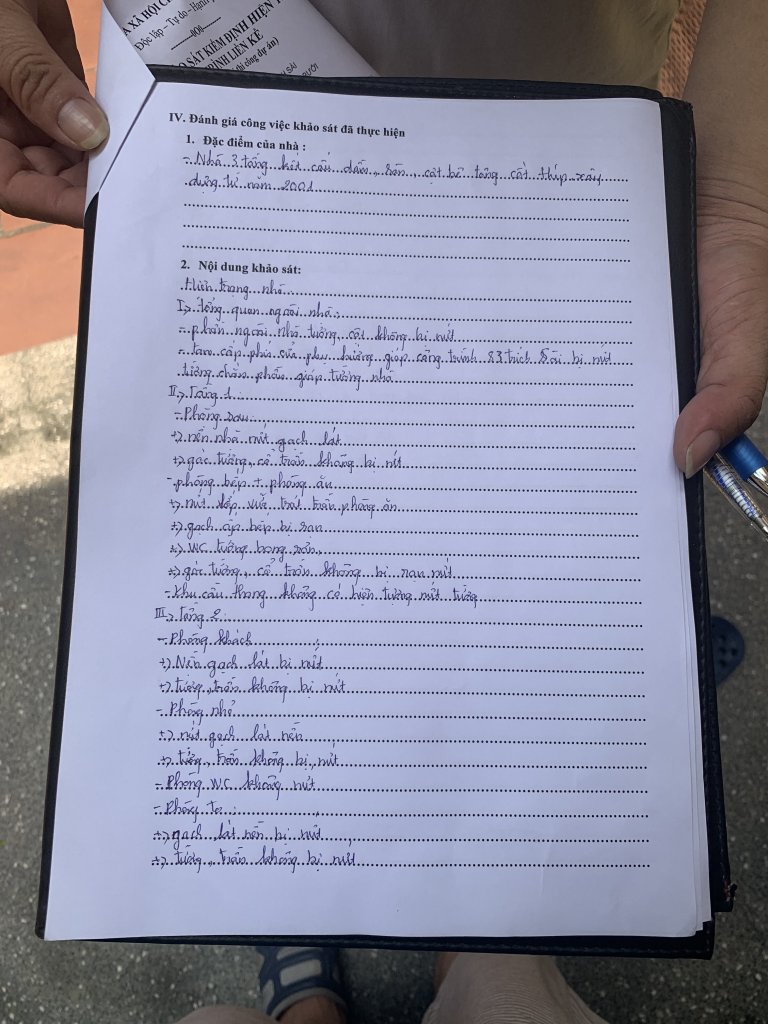 XÃ HỘI
Độc lập – Tự do – Hạnh
---o0o---
SÁT KIỂM ĐỊNH HIỆN
ĐÌNH LIỀN KỀ
thi công dự án)
IV. Đánh giá công việc khảo sát đã thực hiện
1. Đặc điểm của nhà :
- Nhà 3 tầng kết cấu dầm, sàn, cột bê tông cốt thép xây
dựng từ năm 2001
2. Nội dung khảo sát:
Hiện trạng nhà
I, tổng quan ngoài nhà:
- phần ngoài nhà tường, cột không bị nứt
- tam cấp phía cửa phụ hướng giáp công trình 83 trích sài bị nứt
tường chân phần giáp tường nhà
II, Tầng 1
- Phòng sau:
+, nền nhà nứt gạch lát
+, góc tường, cổ trần không bị nứt
- phòng bếp + phòng ăn
+, nứt vữa trát trần phòng ăn
+, gạch ốp bếp bị rạn
+, WC tường bong sơn,
+, góc tường, cổ trần không bị rạn nứt
- Khu cầu thang không có hiện tượng nứt tường
III, tầng 2:
- Phòng khách:
+, Nền gạch lát bị nứt
+, tường, trần không bị nứt
- Phòng nhỏ
+, nứt gạch lát nền
+, tường, trần không bị nứt
- Phòng WC không nứt
- Phòng to:
+, gạch lát nền bị nứt
+, tường, trần không bị nứt